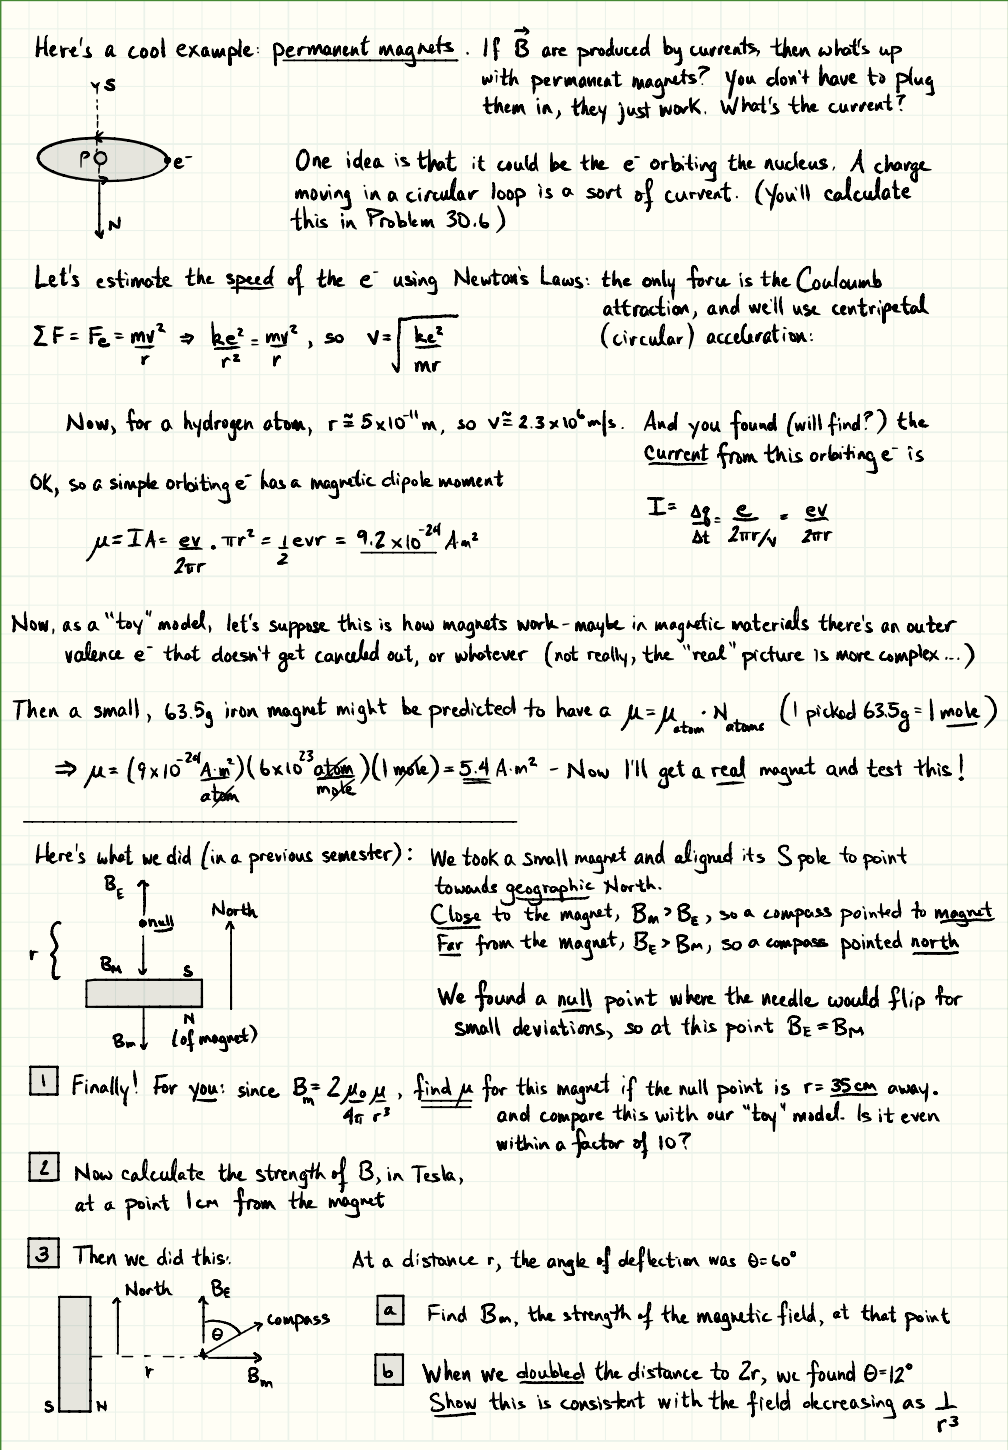 Here's a cool example: permanent magnets. If B⃗ are produced by currents, then what's up
with permanent magnets? You don't have to plug
them in, they just work. What's the current?
S
P
e⁻
N
One idea is that it could be the e⁻ orbiting the nucleus. A charge
moving in a circular loop is a sort of current. (You'll calculate
this in Problem 30.6)
Let's estimate the speed of the e⁻ using Newton's Laws: the only force is the Couloumb
attraction, and we'll use centripetal
(circular) acceleration:
ΣF = Fe = mv²/r ⇒ ke²/r² = mv²/r, so v = √(ke²/mr)
Now, for a hydrogen atom, r ≅ 5x10⁻¹¹ m, so v ≅ 2.3x10⁶ m/s. And you found (will find?) the
current from this orbiting e⁻ is
I = Δq/Δt = e/(2πr/v) = ev/2πr
OK, so a simple orbiting e⁻ has a magnetic dipole moment
μ = IA = ev/2πr · πr² = 1/2 evr = 9.2x10⁻²⁴ Am²
Now, as a "toy" model, let's suppose this is how magnets work - maybe in magnetic materials there's an outer
valence e⁻ that doesn't get canceled out, or whatever (not really, the "real" picture is more complex...)
Then a small, 63.5g iron magnet might be predicted to have a μ = μatom · Natoms (I picked 63.5g = 1 mole)
⇒ μ = (9x10⁻²⁴ A·m²/atom)(6x10²³ atom/mole)(1 mole) = 5.4 A·m² - Now I'll get a real magnet and test this!
Here's what we did (in a previous semester): We took a small magnet and aligned its S pole to point
towards geographic North.
Close to the magnet, Bm > BE, so a compass pointed to magnet
Far from the magnet, BE > BM, so a compass pointed north
We found a null point where the needle would flip for
small deviations, so at this point BE = BM
BE
null
North
r
BM
S
N
Bm
(of magnet)
1 Finally! For you: since Bm = 2 μ₀/4π μ/r³, find μ for this magnet if the null point is r = 35cm away.
and compare this with our "toy" model. Is it even
within a factor of 10?
2 Now calculate the strength of B, in Tesla,
at a point 1cm from the magnet
3 Then we did this: At a distance r, the angle of deflection was θ=60°
North
BE
compass
θ
r
Bm
S
N
a Find Bm, the strength of the magnetic field, at that point
b When we doubled the distance to 2r, we found θ=12°
Show this is consistent with the field decreasing as 1/r³